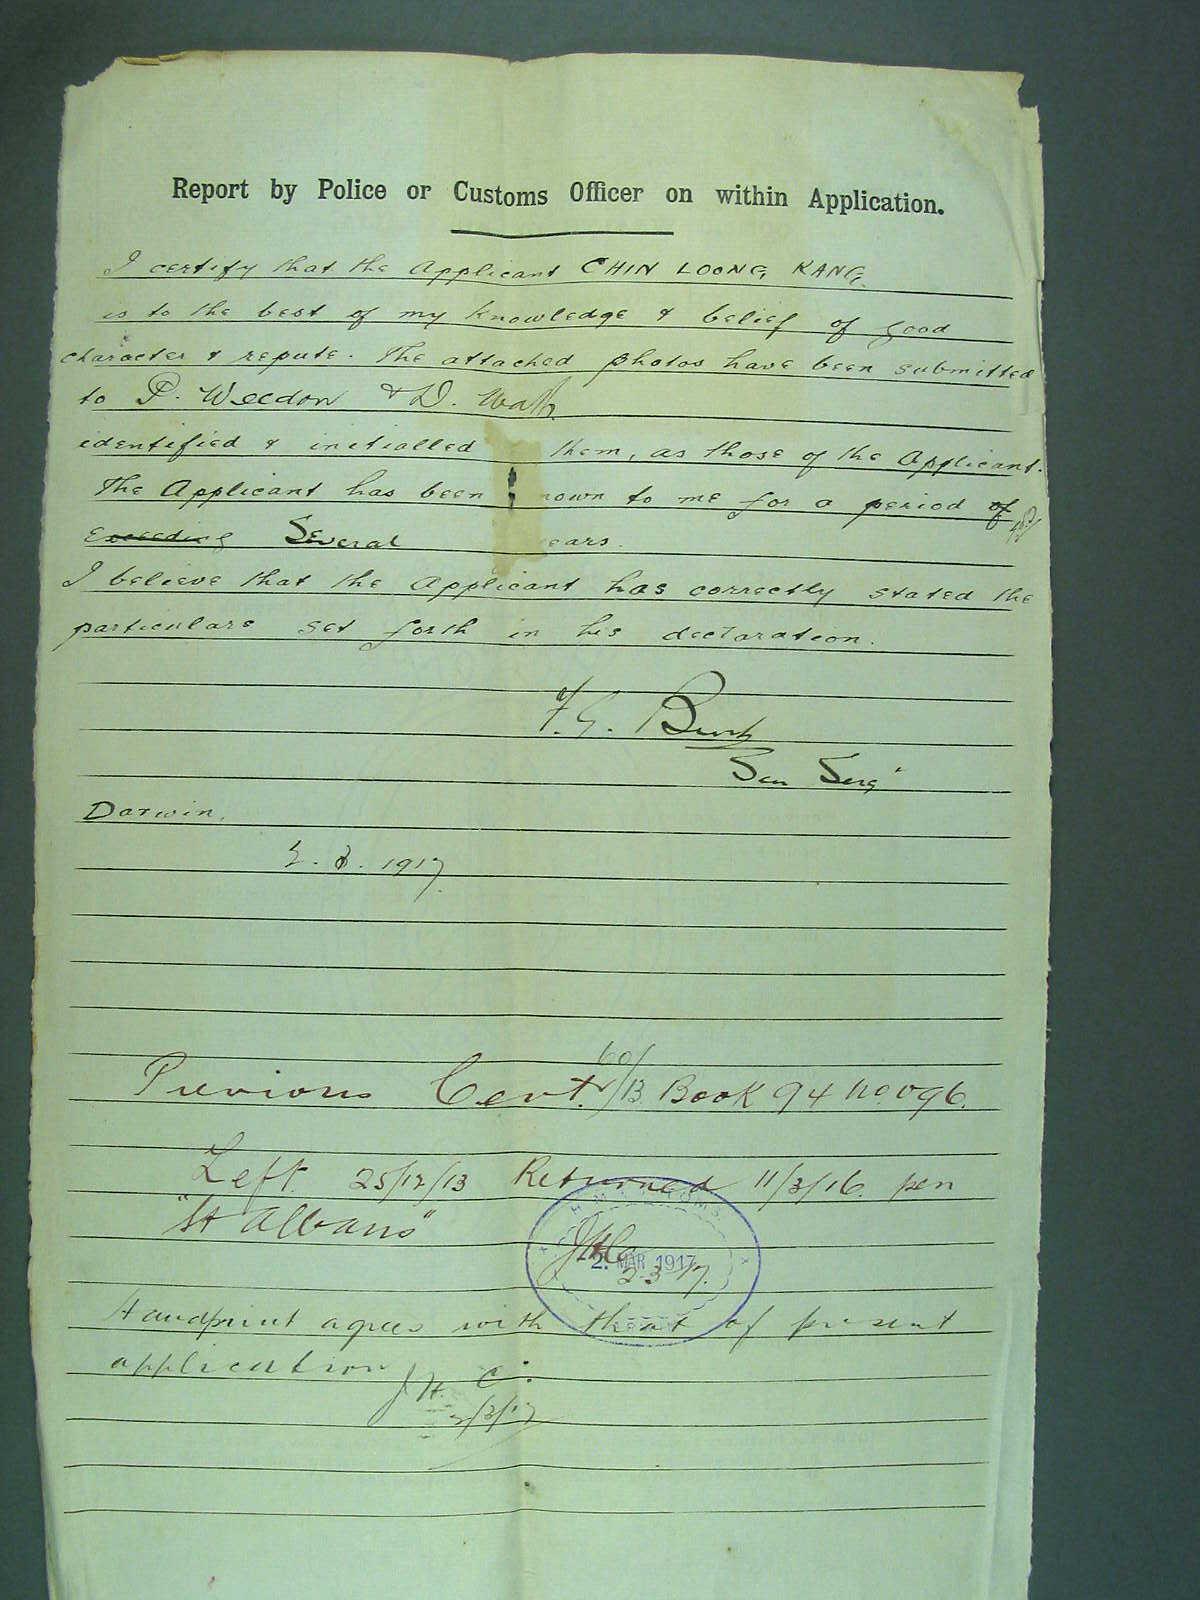 Report by Police or Customs Officer on within Application.
I certify that the Applicant CHIN LOONG KANG
is to the best of my knowledge & belief of good
character & repute. The attached photos have been submitted
to P. Weedon & D.
identified & initialled them, as those of the Applicant.
The Applicant has been nown to me for a period of
Exceeding Several ears.
I believe that the Applicant has correctly stated the
particulars set forth in his declaration.
Sen Serg
Darwin.
1917
Previous Cert. 60/13 Book 94 No. 096.
Left 25/12/13 Returned 11/3/16 per
"St Albans"
JHC
2. MAR 1917
2-3-17.
Handprint agrees with that of present
application J H C.
2/3/17